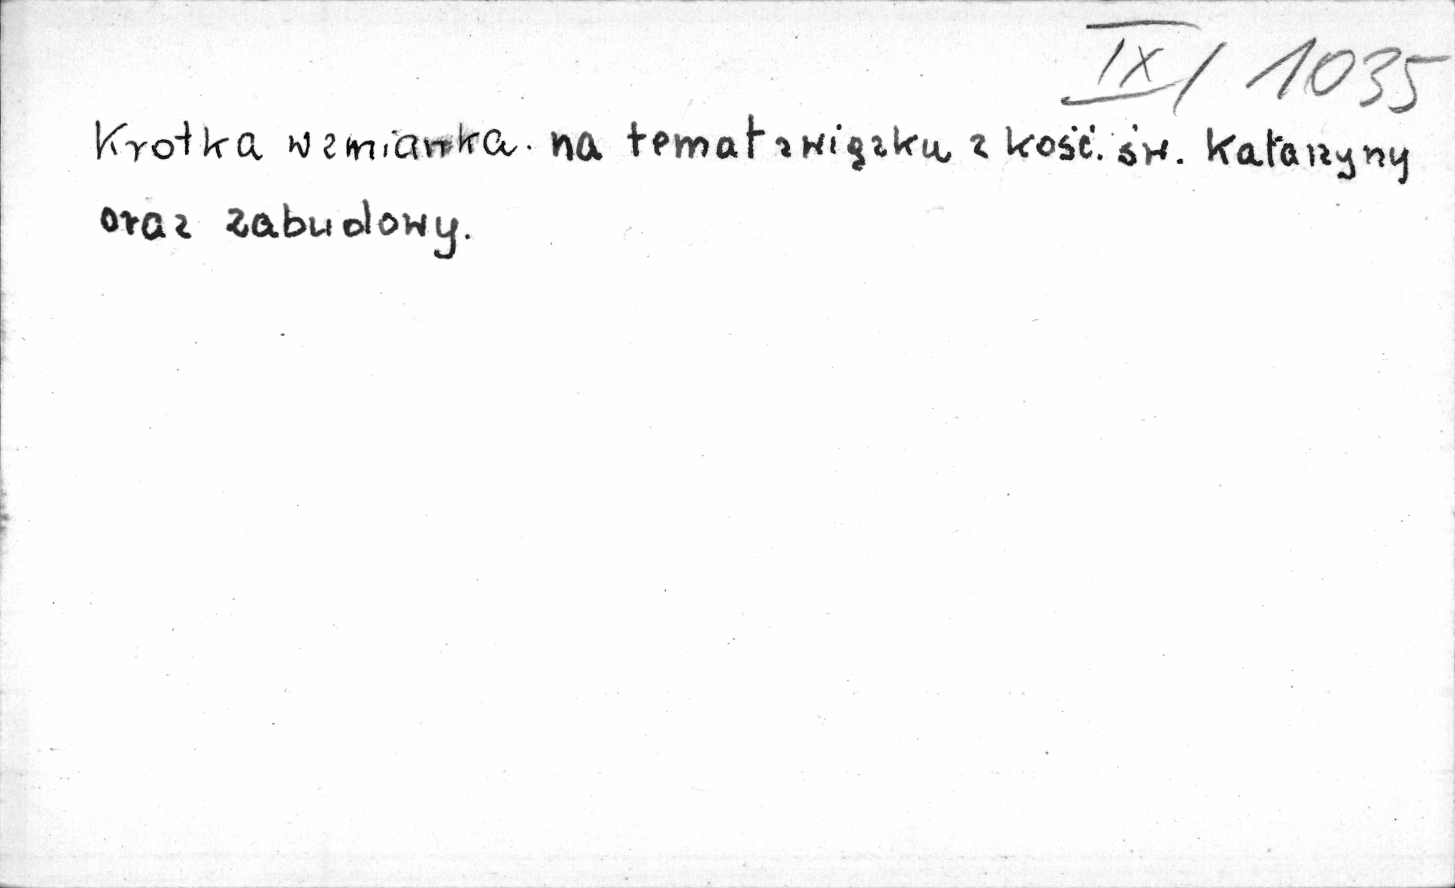 IX/1035
Krotka wzmianka. na temat związku z kość. św. Katarzyny
oraz zabudowy.